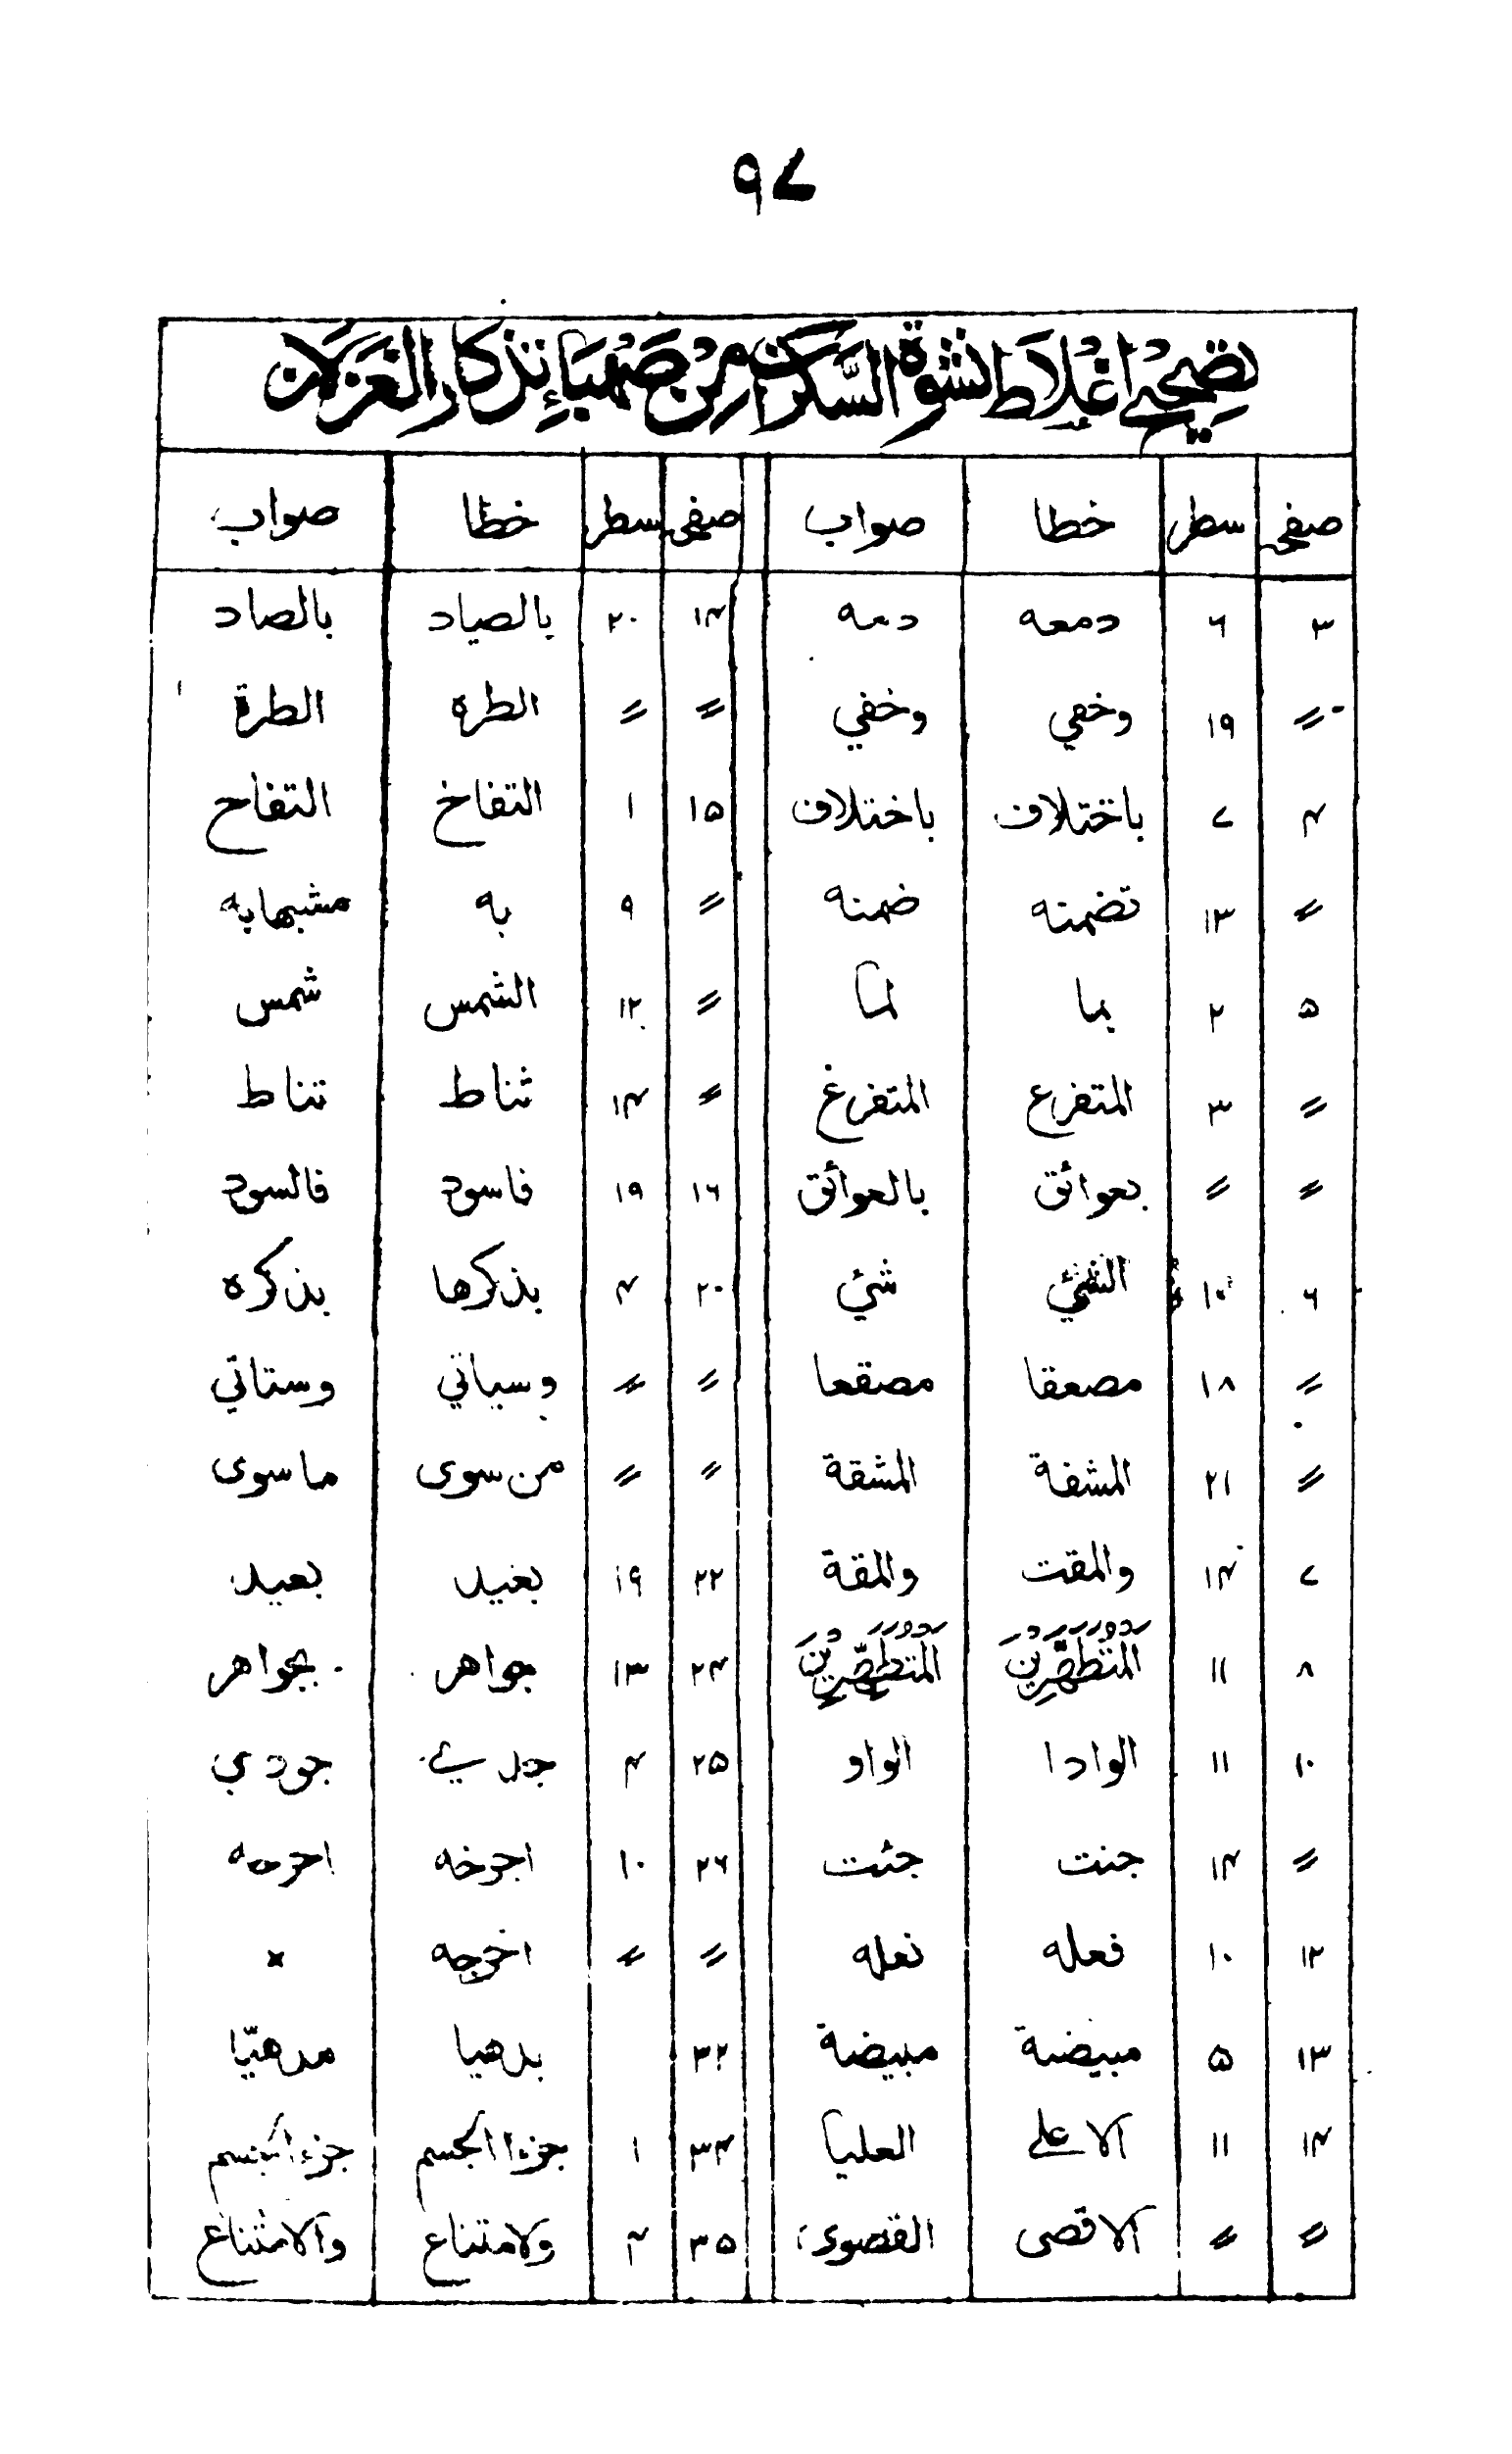 ٩٧
تصحيح اغلاط نشوة السكران من صهباء تذكار الغزلان
صفحہ سطر خطا صواب صفحہ سطر خطا صواب
٣ ٦ دمعه دمه ١٤ ٢٠ بالصياد بالصاد
〃 ١٩ وخفي وخفي 〃 〃 الطره الطرة
٤ ٧ باختلاف باختلاف ١٥ ١ التفاخ التفاح
〃 ١٣ تضمنه ضمنه 〃 ٩ به مشبها به
٥ ٢ بما لما 〃 ١٢ الشمس شمس
〃 ٣ المتفرع المتفرغ 〃 ١٤ ثناط تناط
〃 〃 بعوائق بالعوائق ١٦ ١٩ فاسود فالسود
٦ ١٠ الشئي شئ ٢٠ ٤ بذكرها بذكره
〃 ١٨ مصعقا مصقعا 〃 〃 وسياتي وستاتي
〃 ٢١ المشفة المشقة 〃 〃 من سوى ما سوى
٧ ١٤ والمقت والمقة ٢٢ ١٩ بغيد بعيد
٨ ١١ المتطهرين المتطهرين ٢٤ ١٣ جواهر بجواهر
١٠ ١١ الوادا الواو ٢٥ ٤ جودي
〃 ١٤ جنت جئت ٢٦ ١٠ اجرخه
١٢ ١٠ فعله نعله 〃 〃 اخرجه ×
١٣ ٥ مبيضة مبيضة ٣٢ بدهيا مدهيّا
١٤ ١١ الاعلے العليا ٣٤ ١ جزءا الجسم جزء الجسم
〃 〃 الاقصى القصوى ٣٥ ٤ ولامتناع والامتناع